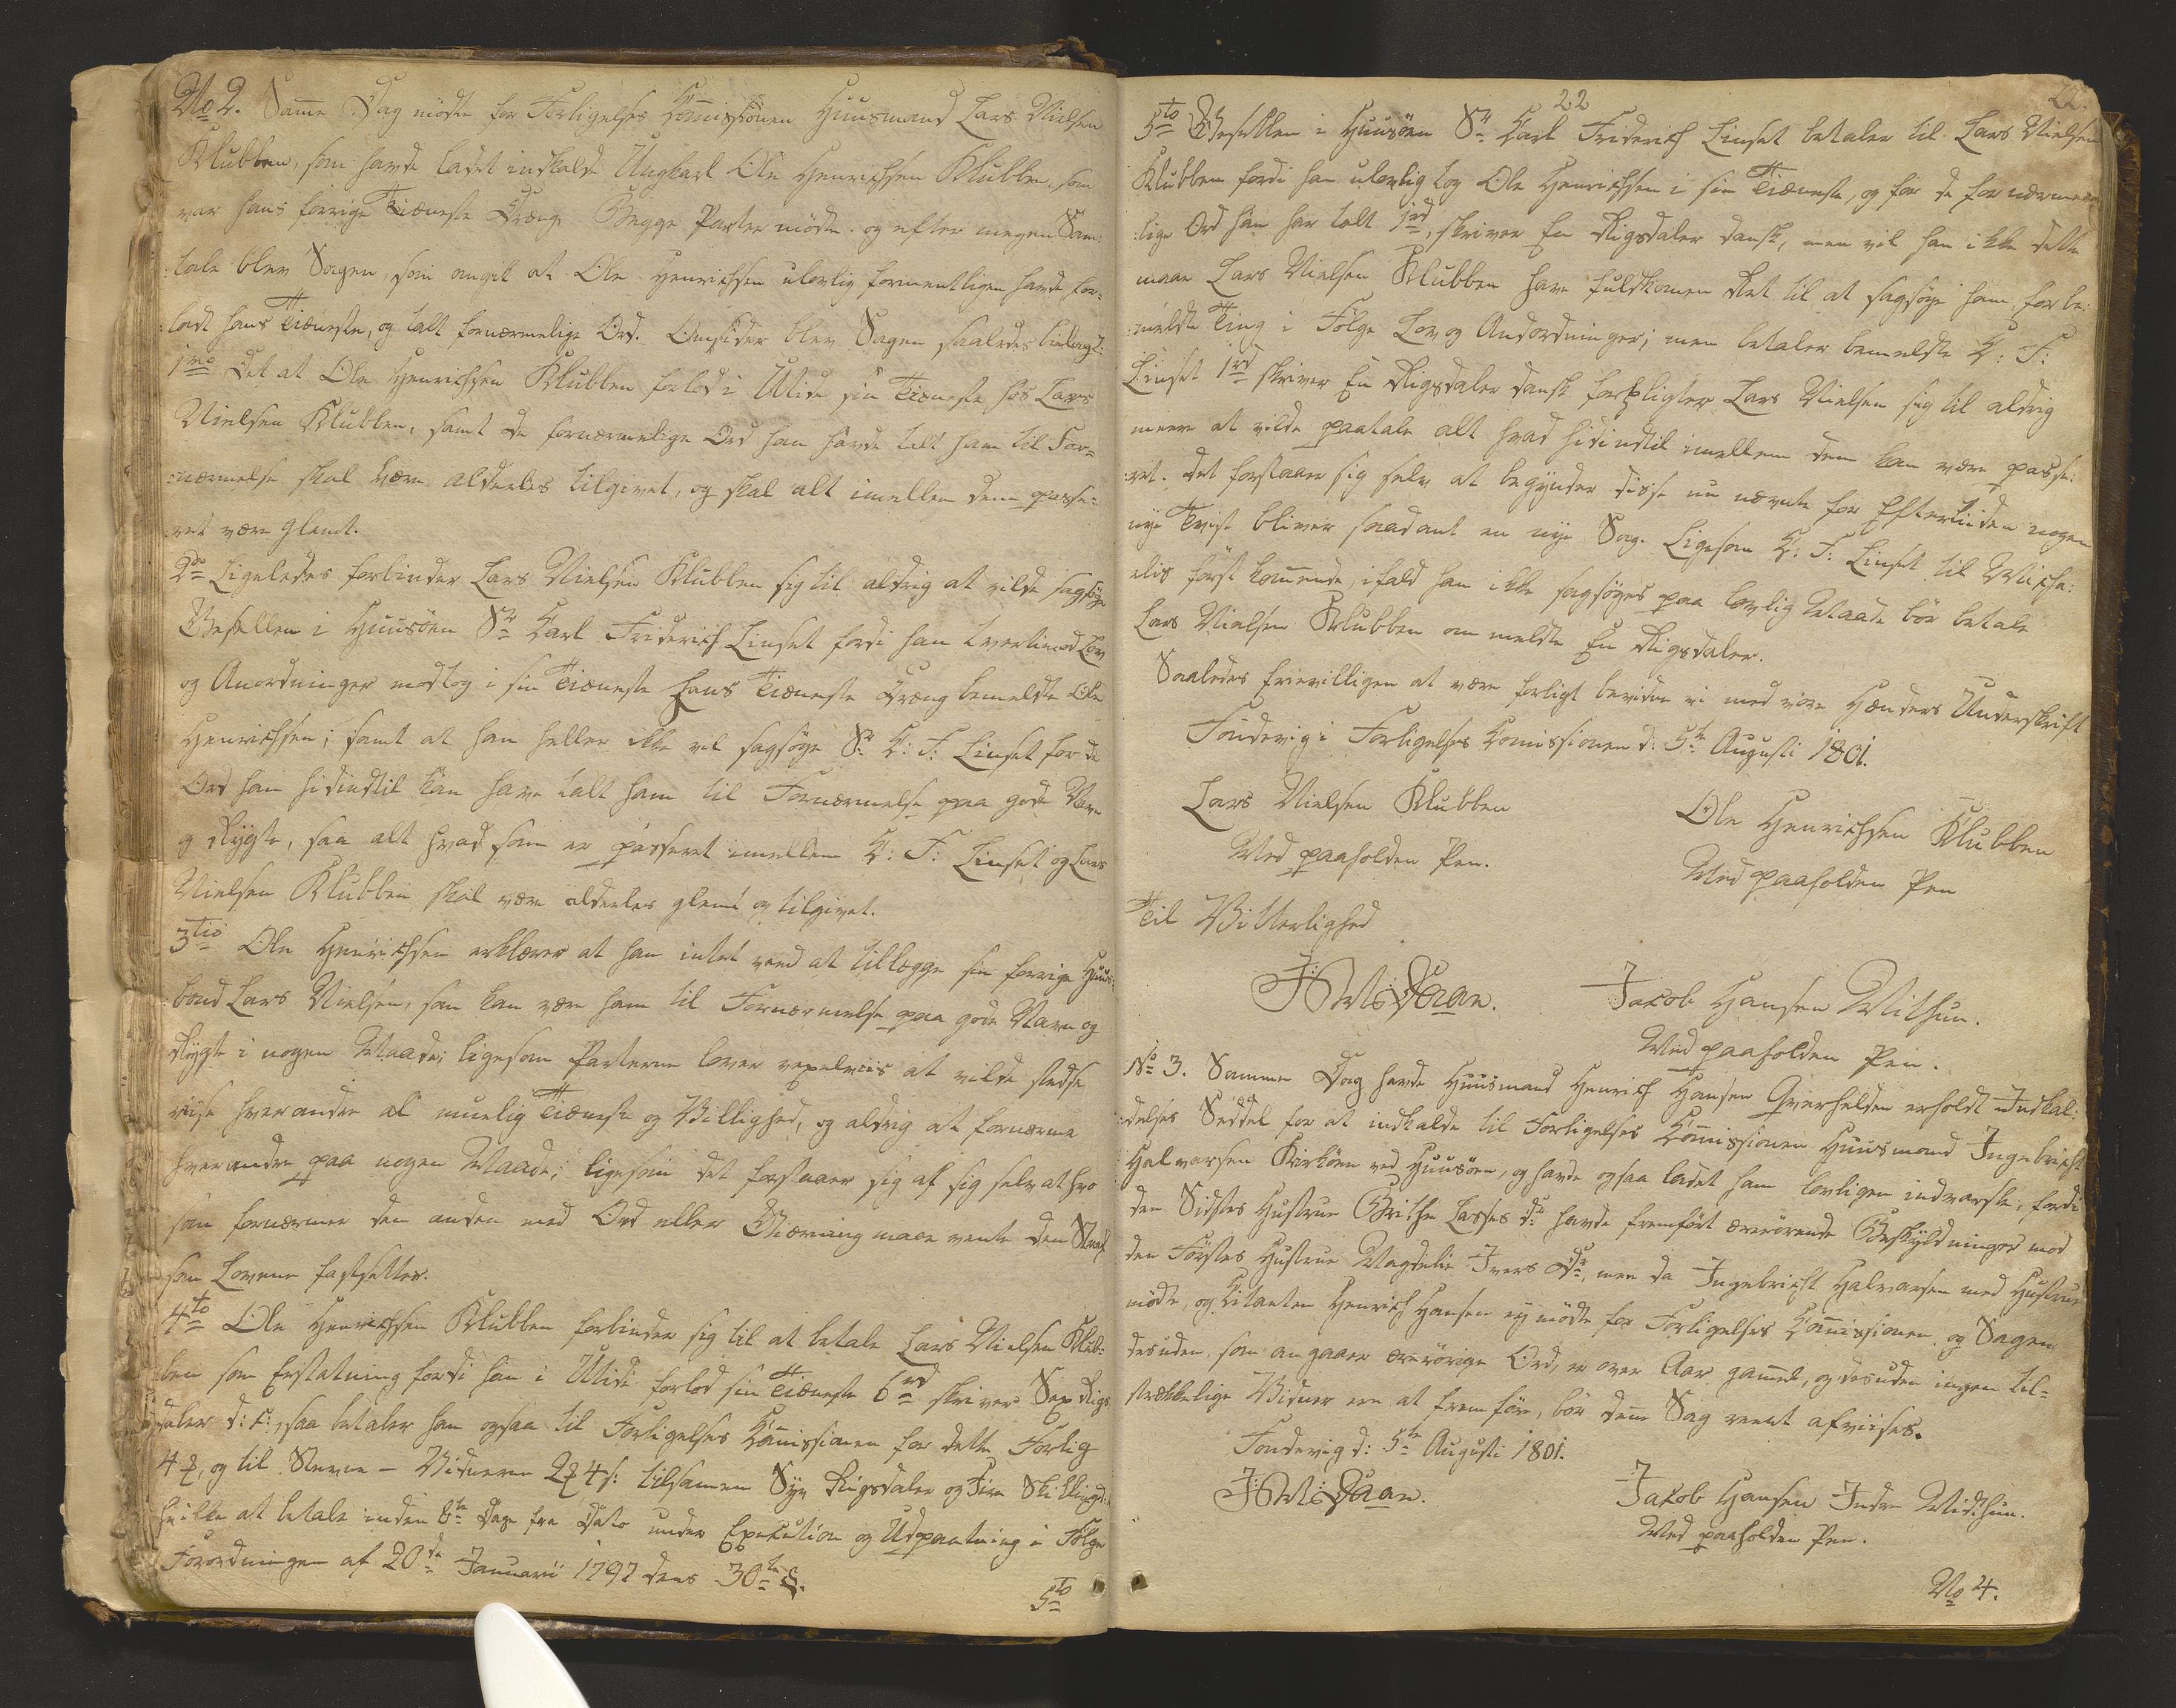 No 2. Samme Dag mödte for Forligelses Commissionen Huusmand Lars Nielsen
Klubben, som havde ladet indkalde Ungkarl Ole Henrichsen Klubben, som
var hans forrige Tieneste Dreng. Begge Parter mödte. og efter megen Sam:
:tale blev Sagen, som angik at Ole Henrichsen ulovlig formentligen havde for=
:ladt hans Tieneste, og talt fornærmelige Ord. Omsider blev Sagen saaledes bielagt:
1mo Det at Ole Henrichsen Klubben forlod i Utide sin Tieneste hos Lars
Nielsen Klubben, samt de fornærmelige Ord han havde talt ham til For=
:nærmelse skal være aldeeles tilgivet, og skal alt imellem dem passe:
:ret være glemt.
2do Ligeledes forbinder Lars Nielsen Klubben sig til aldrig at vilde sagsöge
Gesellen i Huusöen Sr Carl Friderich Linset fordi han tvertimod Lov
og Anordninger modtog i sin Tieneste hans Tieneste Dreng bemeldte Ole
Henrichsen; samt at han heller ikke vil sagsöge Sr C: F: Linset for de
Ord han hidindtil kan have talt ham til Fornærmelse paa gode Navn
og Rygte, saa alt hvad som er passeret imellem C: F: Linset og Lars
Nielsen Klubben skal være aldeeles glemt og tilgivet.
3tio Ole Henrichsen erklærer at han intet veed at tillægge sin forrige Huus:
:bond Lars Nielsen, som kan være ham til Fornærmelse paa gode Navn og
Rygte i nogen Maade; ligesom Parterne lover vexelviis at vilde stedse
viise hverandre al muelig Tieneste og Villighed, og aldrig at fornærme
hverandre paa nogen Maade; ligesom det forstaaer sig af sig selv at hvo
som fornærmer den anden med Ord eller Gierning maae vente den Straf
som Lovene fastsætter.
4to Ole Henrichsen Klubben forbinder sig til at betale Lars Nielsen Klub:
:ben som Erstatning fordi han i Utide forlod sin Tieneste 6rd skriver Sex Rigs
daler d: c:, saa betaler han ogsaa til Forligelses Commissionen for dette Forlig
4 , og til Stevne-Vidnerne 2 4 s: tilsammen Syv Rigsdaler og Fire Skilling
hvilke at betale inden 8te Dage fra Dato under Execution og Udpantning i Følge
Forordningen af 20de Januarii 1797 dens 30te §.
5to
22
22.
5to Gesellen i Huusöen Sr Carl Friderich Linset betaler til Lars Nielsen
Klubben fordi han ulovlig tog Ole Henrichsen i sin Tieneste, og for de fornærme
:lige Ord han har talt 1rd, skriver En Rigsdaler dansk, men vil han ikke dette
maae Lars Nielsen Klubben have fuldkommen Ret til at sagsöge ham for be:
:meldte Ting i Følge Lov og Andordninger; men betaler bemeldte C: F:
Linset 1rd skriver En Rigsdaler dansk forpligter Lars Nielsen sig til aldrig
meere at vilde paatale alt hvad hidindtil imellem dem kan være passe:
:ret. Det forstaaer sig selv at begynder disse nu nævnte for Eftertiiden nogen
nye Tvist bliver saadant en nye Sag. Ligesom C: F: Linset til Micha:
elis först kommende, ifald han ikke sagsöges paa lovlig Maade bör betale
Lars Nielsen Klubben ommeldte En Rigsdaler.
Saaledes frievilligen at være forligt bevidne vi med vore Hænders Underskrift
Föndevig i Forligelses Commissionen d: 5te Augusti 1801.
Lars Nielsen Klubben
Med paaholden Pen.
Ole Henrichsen Klubben
Med paaholden Pen
Til Vitterlighed
Jakob Hansen Mithun.
Med paaholden Pen.
No 3. Samme Dag havde Huusmand Henrich Hansen Qverhelden erholdt Indkal:
:delses Seddel for at indkalde til Forligelses Commissionen Huusmand Ingebricht
Halvorsen Kirköen ved Huusöen, og havde ogsaa ladet ham lovligen indvarsle, fordi
den Sidstes Hustrue Grithe Lasses dr havde fremfört ærerörende Beskyldninger mod
den Förstes Hustrue Magdelie Ivers Dr, men da Ingebricht Halvorsen med Hustrue
mödte, og Citanten Henrich Hansen ej mödte for Forligelses Commissionen, og Sagen
desuden, som angaaer ærerörige Ord, er over Aar gammel, og desuden ingen til=
strækkelige Vidner ere at fremföre, bör denne Sag reent afviises.
Föndevig d: 5te Augusti 1801.
Jakob Hansen Indre Midthun.
Med paaholden Pen.
No 4.